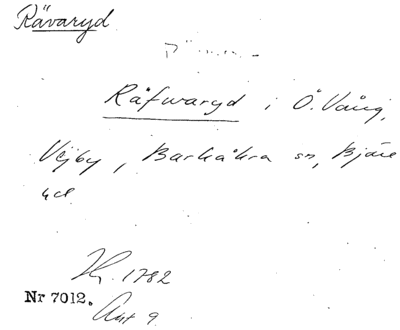 Rävaryd
Räfwaryd i Ö. Vång,
Vejby, Barkåkra sn, Bjäre
hd
Kr. 1782
Nr 7012.
Akt 9